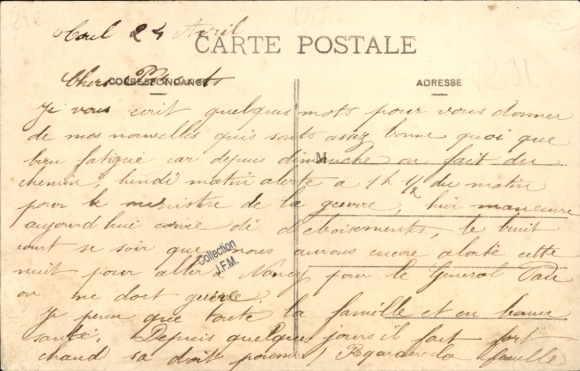 Toul 24 Avril
CARTE POSTALE
Chers Parents
CORRESPONDANCE
ADRESSE
Je vous ecrit quelques mots pour vous donner
de mes nouvelles qui sont assez bonne quoi que
bien fatigué car depuis dimanche on fait du
M
chemin, lundi matin alerte a 1h 1/2 du matin
pour le ministre de la guerre, hier manœuvre
aujourd'hui corvé de deboisements, le bruit
court se soir que nous aurons encore alerte cette
nuit pour aller a Nancy pour le General Pau
on ne dort guère.
Je pense que toute la famille et en bonne
santé, Depuis quelques jours il fait fort
chaud sa doit
la famille
Collection
J.F.M.